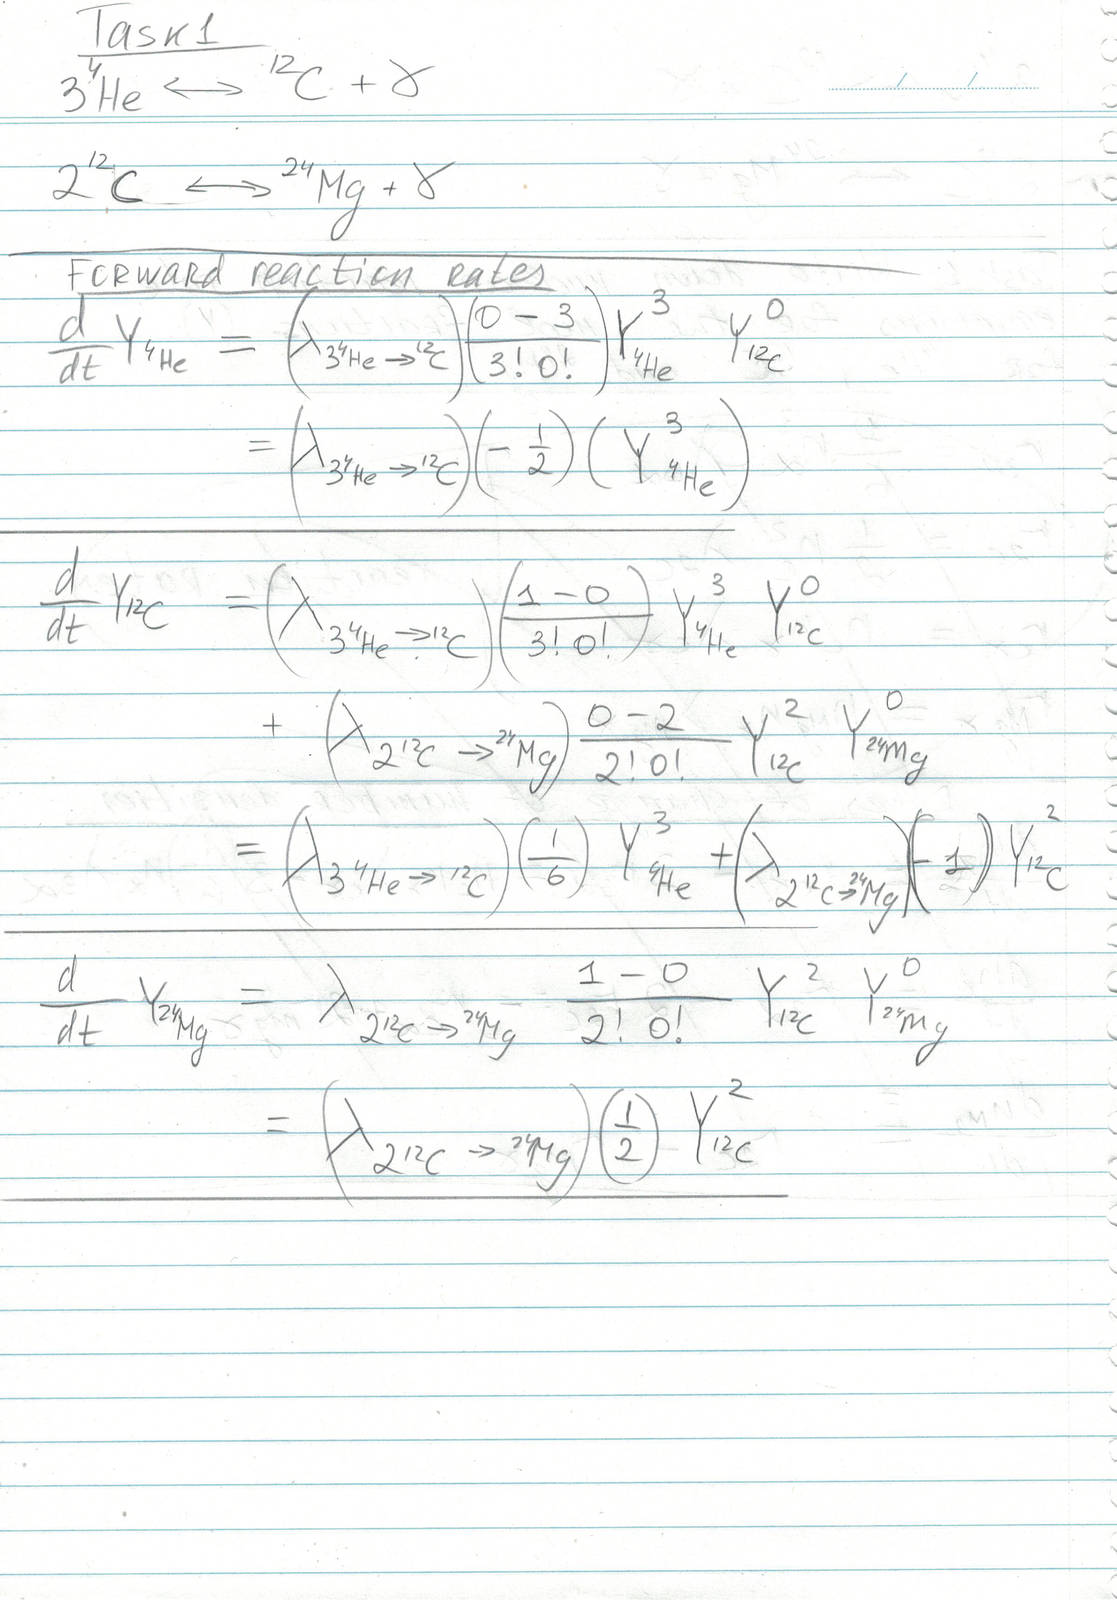 Task 1
3⁴He ⟷ ¹²C + γ
2¹²C ⟷ ²⁴Mg + γ
Forward reaction rates
d/dt Y_⁴He = (λ_3⁴He→¹²C) ((0 − 3)/(3! 0!)) Y³_⁴He Y⁰_¹²C
= (λ_3⁴He→¹²C) (− 1/2) (Y³_⁴He)
d/dt Y_¹²C = (λ_3⁴He→¹²C) ((1 − 0)/(3! 0!)) Y³_⁴He Y⁰_¹²C
+ (λ_2¹²C→²⁴Mg) (0 − 2)/(2! 0!) Y²_¹²C Y⁰_²⁴Mg
= (λ_3⁴He→¹²C) (1/6) Y³_⁴He + (λ_2¹²C→²⁴Mg) (− 1) Y²_¹²C
d/dt Y_²⁴Mg = λ_2¹²C→²⁴Mg (1 − 0)/(2! 0!) Y²_¹²C Y⁰_²⁴Mg
= (λ_2¹²C→²⁴Mg) (1/2) Y²_¹²C